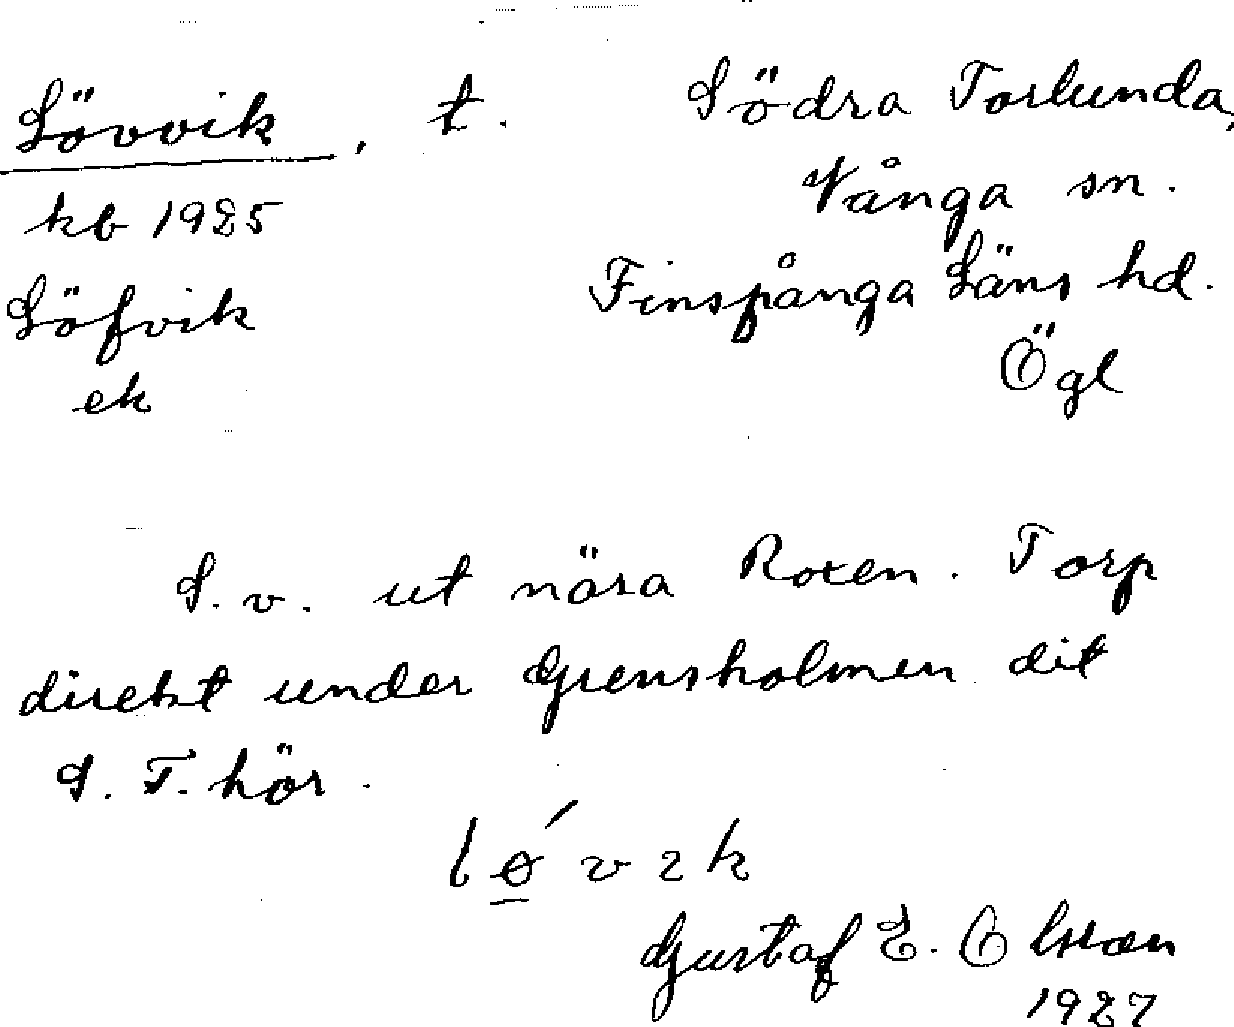 Lövvik, t.
kb 1925
Löfvik
ek
Södra Torlunda,
Vånga sn.
Finspånga Läns hd.
Ögl
S.v. ut nära Roxen. Torp
direkt under Grensholmen dit
S. T. hör.
Gustaf E. Olsson
1927